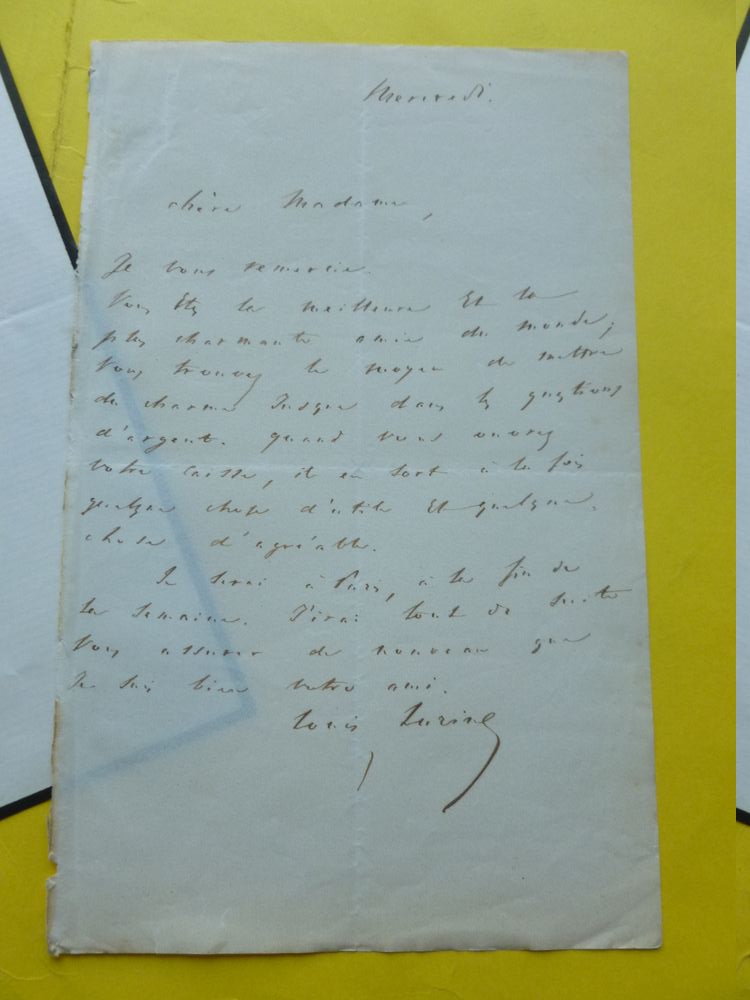 Mercredi.
chère Madame,
Je vous remercie.
Vous êtes la meilleure et la
plus charmante amie du monde;
vous trouvez le moyen de mettre
du charme jusque dans les questions
d'argent. quand vous ouvrez
votre caisse, il en sort à la fois
quelque chose d'utile et quelque
chose d'agréable.
Je serai à Paris, à la fin de
la semaine. J'irai tout de suite
vous assurer de nouveau que
je suis bien votre ami.
Louis Lurine